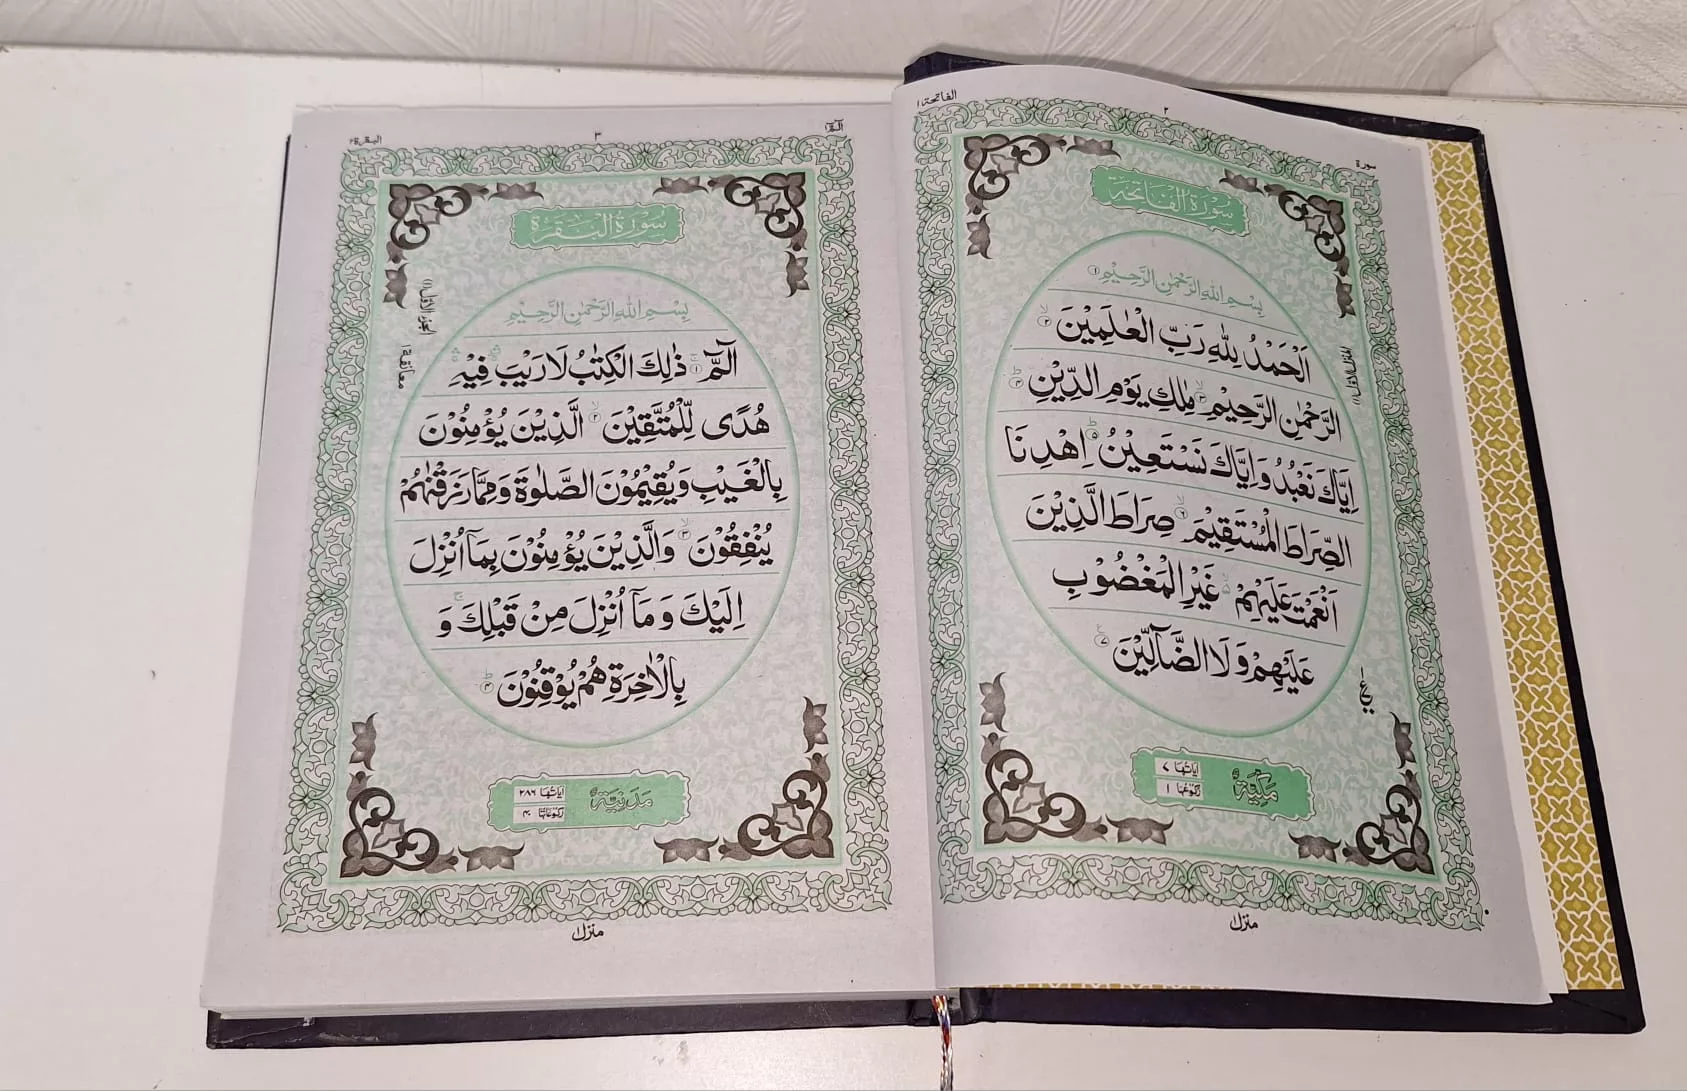 الفاتحة ١
٢
سورة
سُوْرَةُ الْفَاتِحَةِ
بِسْمِ اللهِ الرَّحْمٰنِ الرَّحِيْمِ ١
اَلْحَمْدُ لِلّٰهِ رَبِّ الْعٰلَمِيْنَ ٢
الرَّحْمٰنِ الرَّحِيْمِ ٣ مٰلِكِ يَوْمِ الدِّيْنِ ٤
اِيَّاكَ نَعْبُدُ وَاِيَّاكَ نَسْتَعِيْنُ ٥ اِهْدِنَا
الصِّرَاطَ الْمُسْتَقِيْمَ ٦ صِرَاطَ الَّذِيْنَ
اَنْعَمْتَ عَلَيْهِمْ غَيْرِ الْمَغْضُوْبِ
عَلَيْهِمْ وَلَا الضَّآلِّيْنَ ٧
مَكِّيَّةٌ
اٰيَاتُهَا ٧
رُكُوْعُهَا ١
منزل
البقرة ٢
٣
الٓمّٓ ١
سُوْرَةُ الْبَقَرَةِ
بِسْمِ اللهِ الرَّحْمٰنِ الرَّحِيْمِ
الٓمّٓ ١ ذٰلِكَ الْكِتٰبُ لَا رَيْبَ فِيْهِ
هُدًى لِّلْمُتَّقِيْنَ ٢ الَّذِيْنَ يُؤْمِنُوْنَ
بِالْغَيْبِ وَيُقِيْمُوْنَ الصَّلٰوةَ وَمِمَّا رَزَقْنٰهُمْ
يُنْفِقُوْنَ ٣ وَالَّذِيْنَ يُؤْمِنُوْنَ بِمَآ اُنْزِلَ
اِلَيْكَ وَمَآ اُنْزِلَ مِنْ قَبْلِكَ وَ
بِالْاٰخِرَةِ هُمْ يُوْقِنُوْنَ ٤
معانقة ١
مَدَنِيَّةٌ
اٰيَاتُهَا ٢٨٦
رُكُوْعَاتُهَا ٤٠
منزل